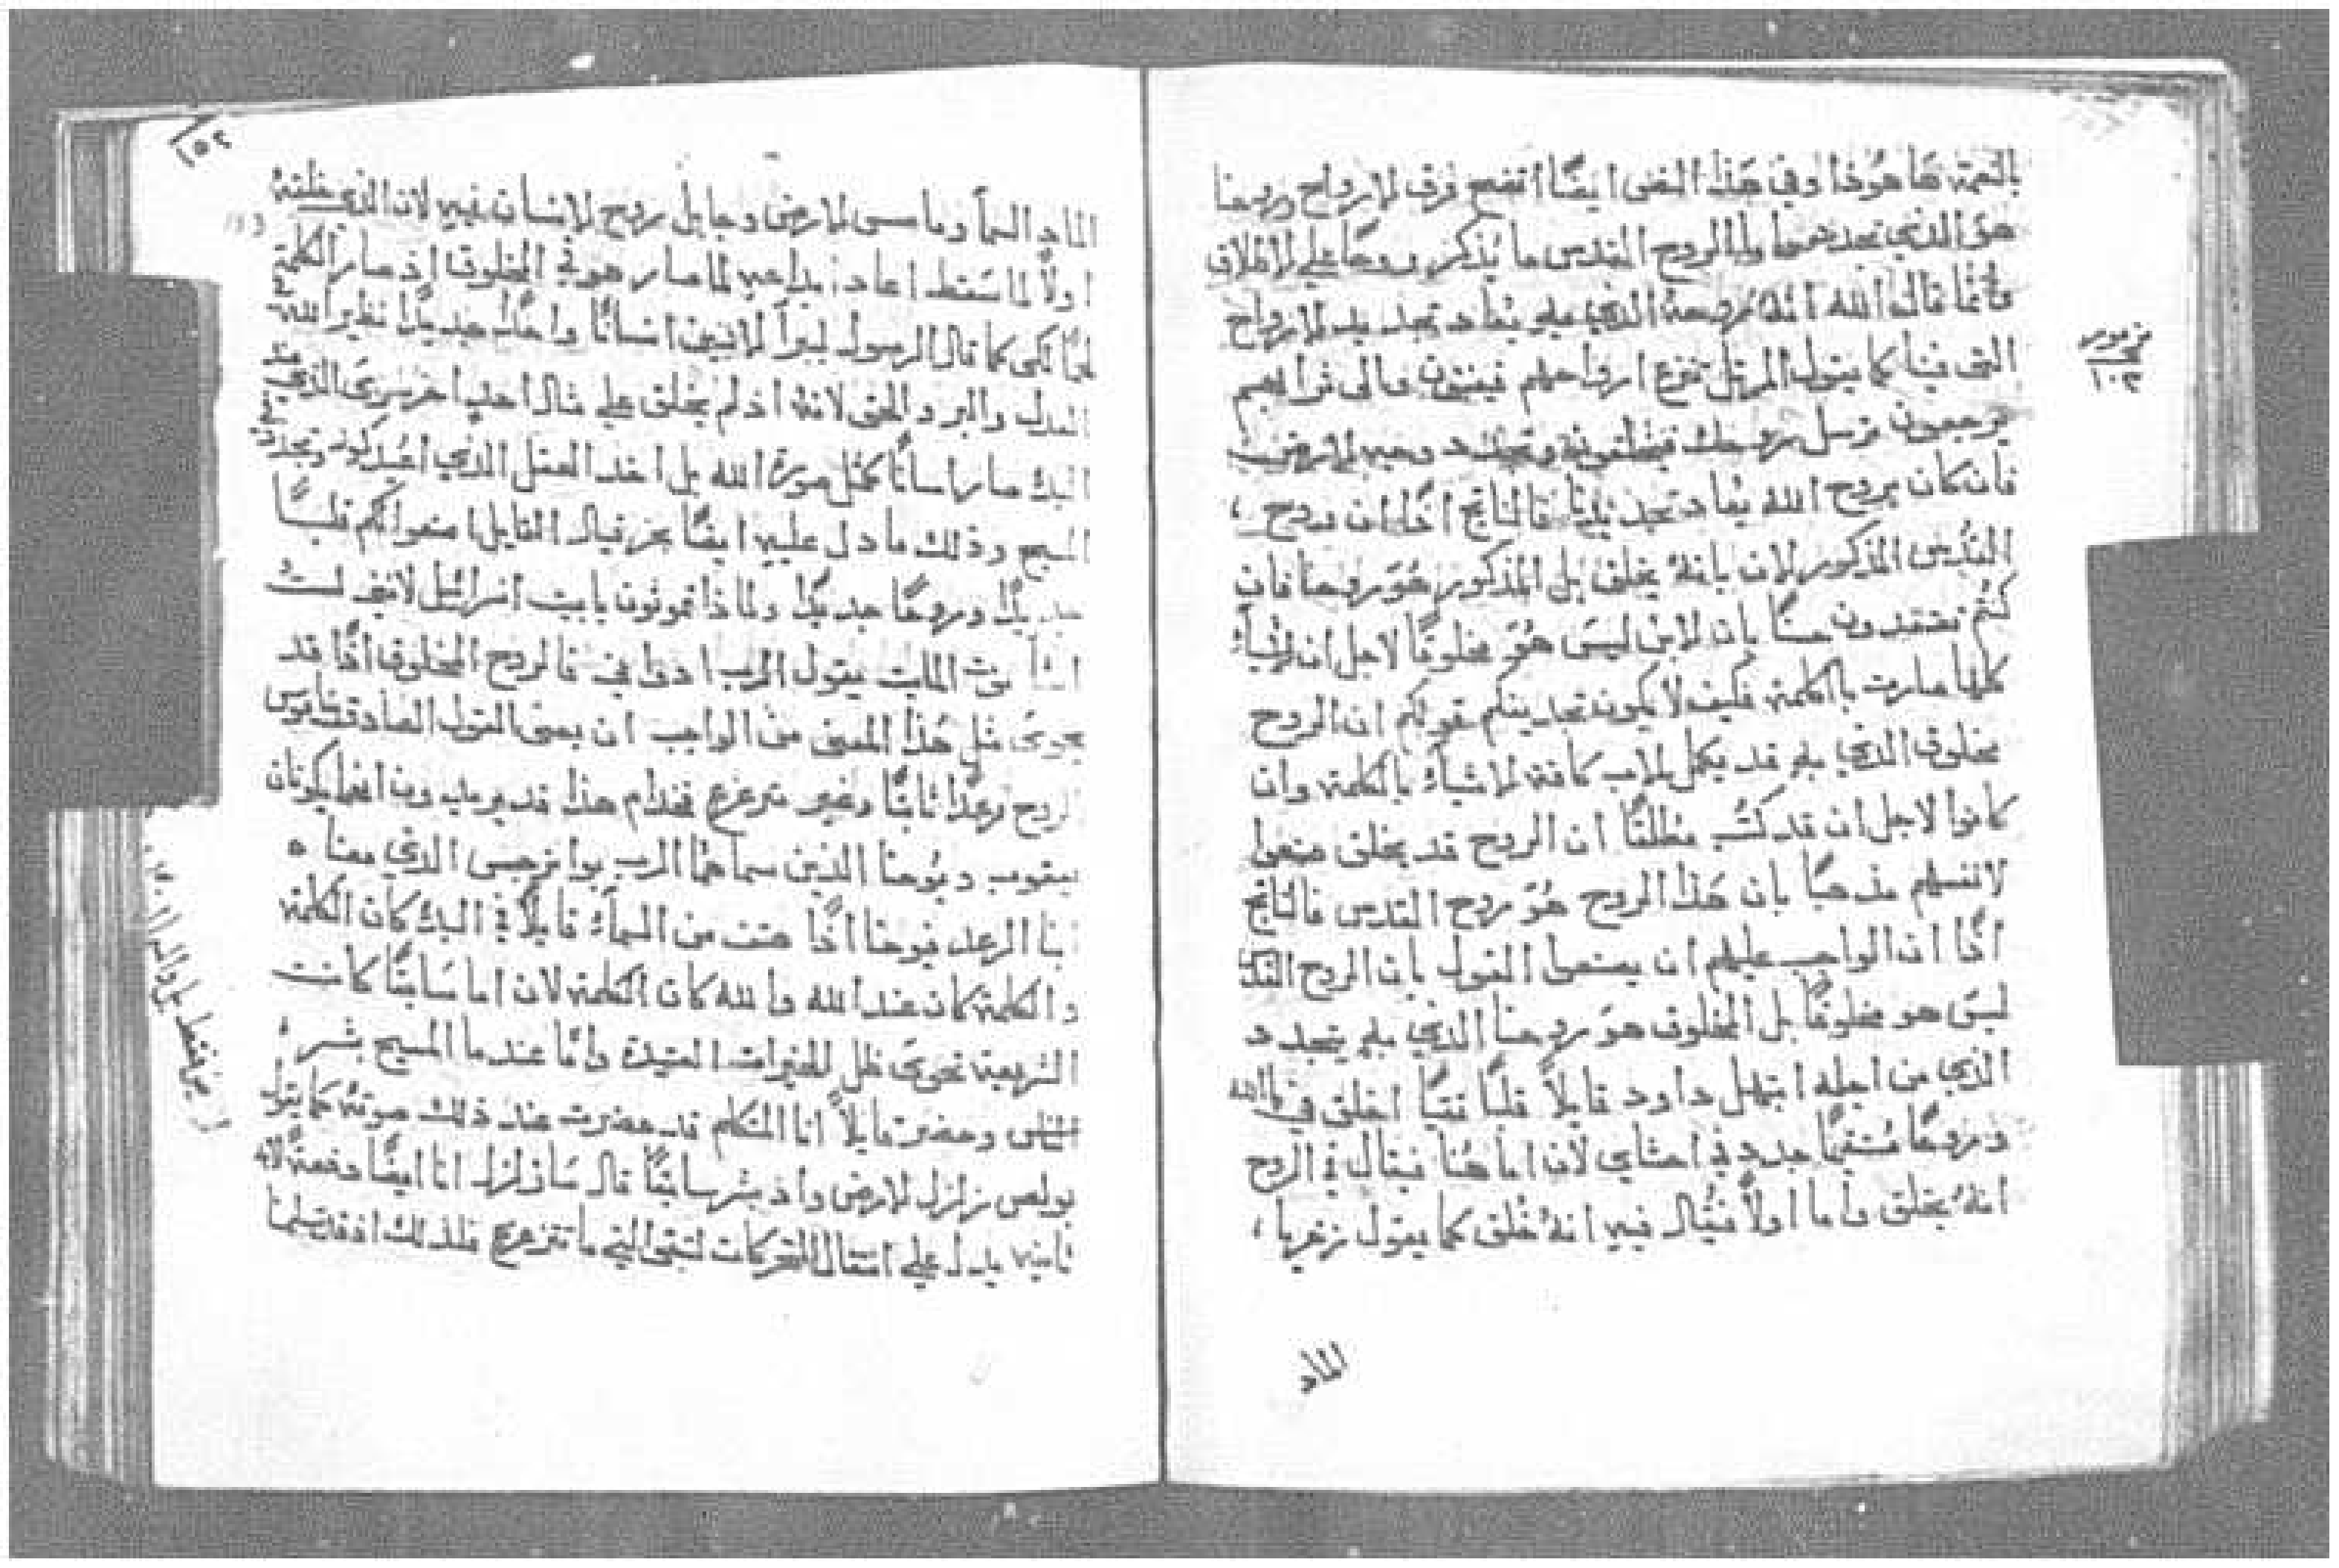 بالنعمة هَا هُوَذا وفي هَذا المَعنى ايضًا اتضح فرق الارواح وروحنا
هوَ الذي تجدد واما الروح القدس ما يُذكر روحًا على الاطلاق
وانما قال الله انهُ روحهُ الذي بهِ يُعاد تجديد الارواح
التي فينا كما يقول المرتل تنزع ارواحهم فيفنون والى ترابهم
يرجعون ترسل روحك فيخلقون وتجدد وجه الارض
فان كان بروح الله يعاد تجديدنا فالناتج اذًا ان روح
القُدس المذكور الان بانهُ يخلق بل المذكور هُوَ روحنا فان
كنتُم تعتقدون حسنًا بان الابن ليسَ هُوَ مخلوقًا لاجل ان الاشياءَ
كلها صارت بالكلمة فكيف لا يكون تجديفكم قولكم ان الروح
مخلوق الذي بهِ قد يكمل الاب كافة الاشياءَ بالكلمة وان
كانوا لاجل ان قد كتُب مطلقًا ان الروح قد يخلق صنعوا
لانفسهم مذهبًا بان هَذا الروح هُوَ روح القدس فالناتج
اذًا ان الواجب عليهم ان يصنعوا القول بان الروح القدس
ليسَ هو مخلوقًا بل المخلوق هوَ روحنا الذي بهِ يتجدد
الذي من اجله ابتهل داود قايلاً قلبًا نقيًا اخلق فيَّ يا الله
وروحًا مُستقيمًا جدد في احشاي لان اما هُنا فيقال في الروح
انهُ يخلق واما اولاً فيُقال فيهِ انهُ خُلق كما يقول زخريا
الماد
مزمور
١٠٣
١٥٢
113
الماد السمآ وماسس الارض وجابل روح الانسان فيهِ لان الذي خلقهُ
اولاً لما سَقط اعاد ابداعهِ لما صار هو في المخلوق اذ صار الكلمة
لحمًا لكي كما قال الرسول ليبرأ الاثنين انسانًا واحدًا جديدًا نظير الله
العدل والبر والحق لانهُ اذ لم يخلق على مثال احدٍ اخر سوىَ الذي منذ
البدء صار انسانًا كمثل صورة الله بل اخذ العقل الذي اعُيد كونه وتجدد
المسيح وذلك ما دل عليهِ ايضًا حزقيال القايل اصنعوا لكم قلبًا
جديدًا وروحًا جديدًا ولماذا تموتون يا بيت اسرائيل لانني لست
اشآ موت المايت يقول الرب ادوناي فالروح المخلوق اذًا قد
يحوىَ مثل هَذا المعنى من الواجب ان يصنى القول الصادق
الروح رعدًا ثابتًا وغير متزعزع فخدام هذا قد يريدون انهما يكونان
يعقوب ويُوحنا الذين سماهُما الرب بوانرجس الذي معناه
ابنا الرعد فيوحنا اذًا هتف من السماءَ قايلاً في البدء كان الكلمة
والكلمة كان عند الله والله كان الكلمة لان اما سَابقًا كانت
الشريعة تحوىَ ظل الخيرات العتيدة وامّا عندما المسيح بشر
وحضر قايلاً انا المتكلم قد حضرت عند ذلك صوتهُ كما يقول
بولص زلزل الارض واذ بشر سابقًا قال سَازلزل انا ايضًا دفعةً لانه
ثانيه يدل على انتقال المتحركات لتبقى التي ما تتزعزع فلذلك اذ قد تسلمنا